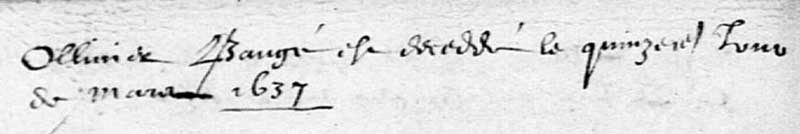 Ollivier Baugé est deceddé le quinze^e Jour
de mars 1637